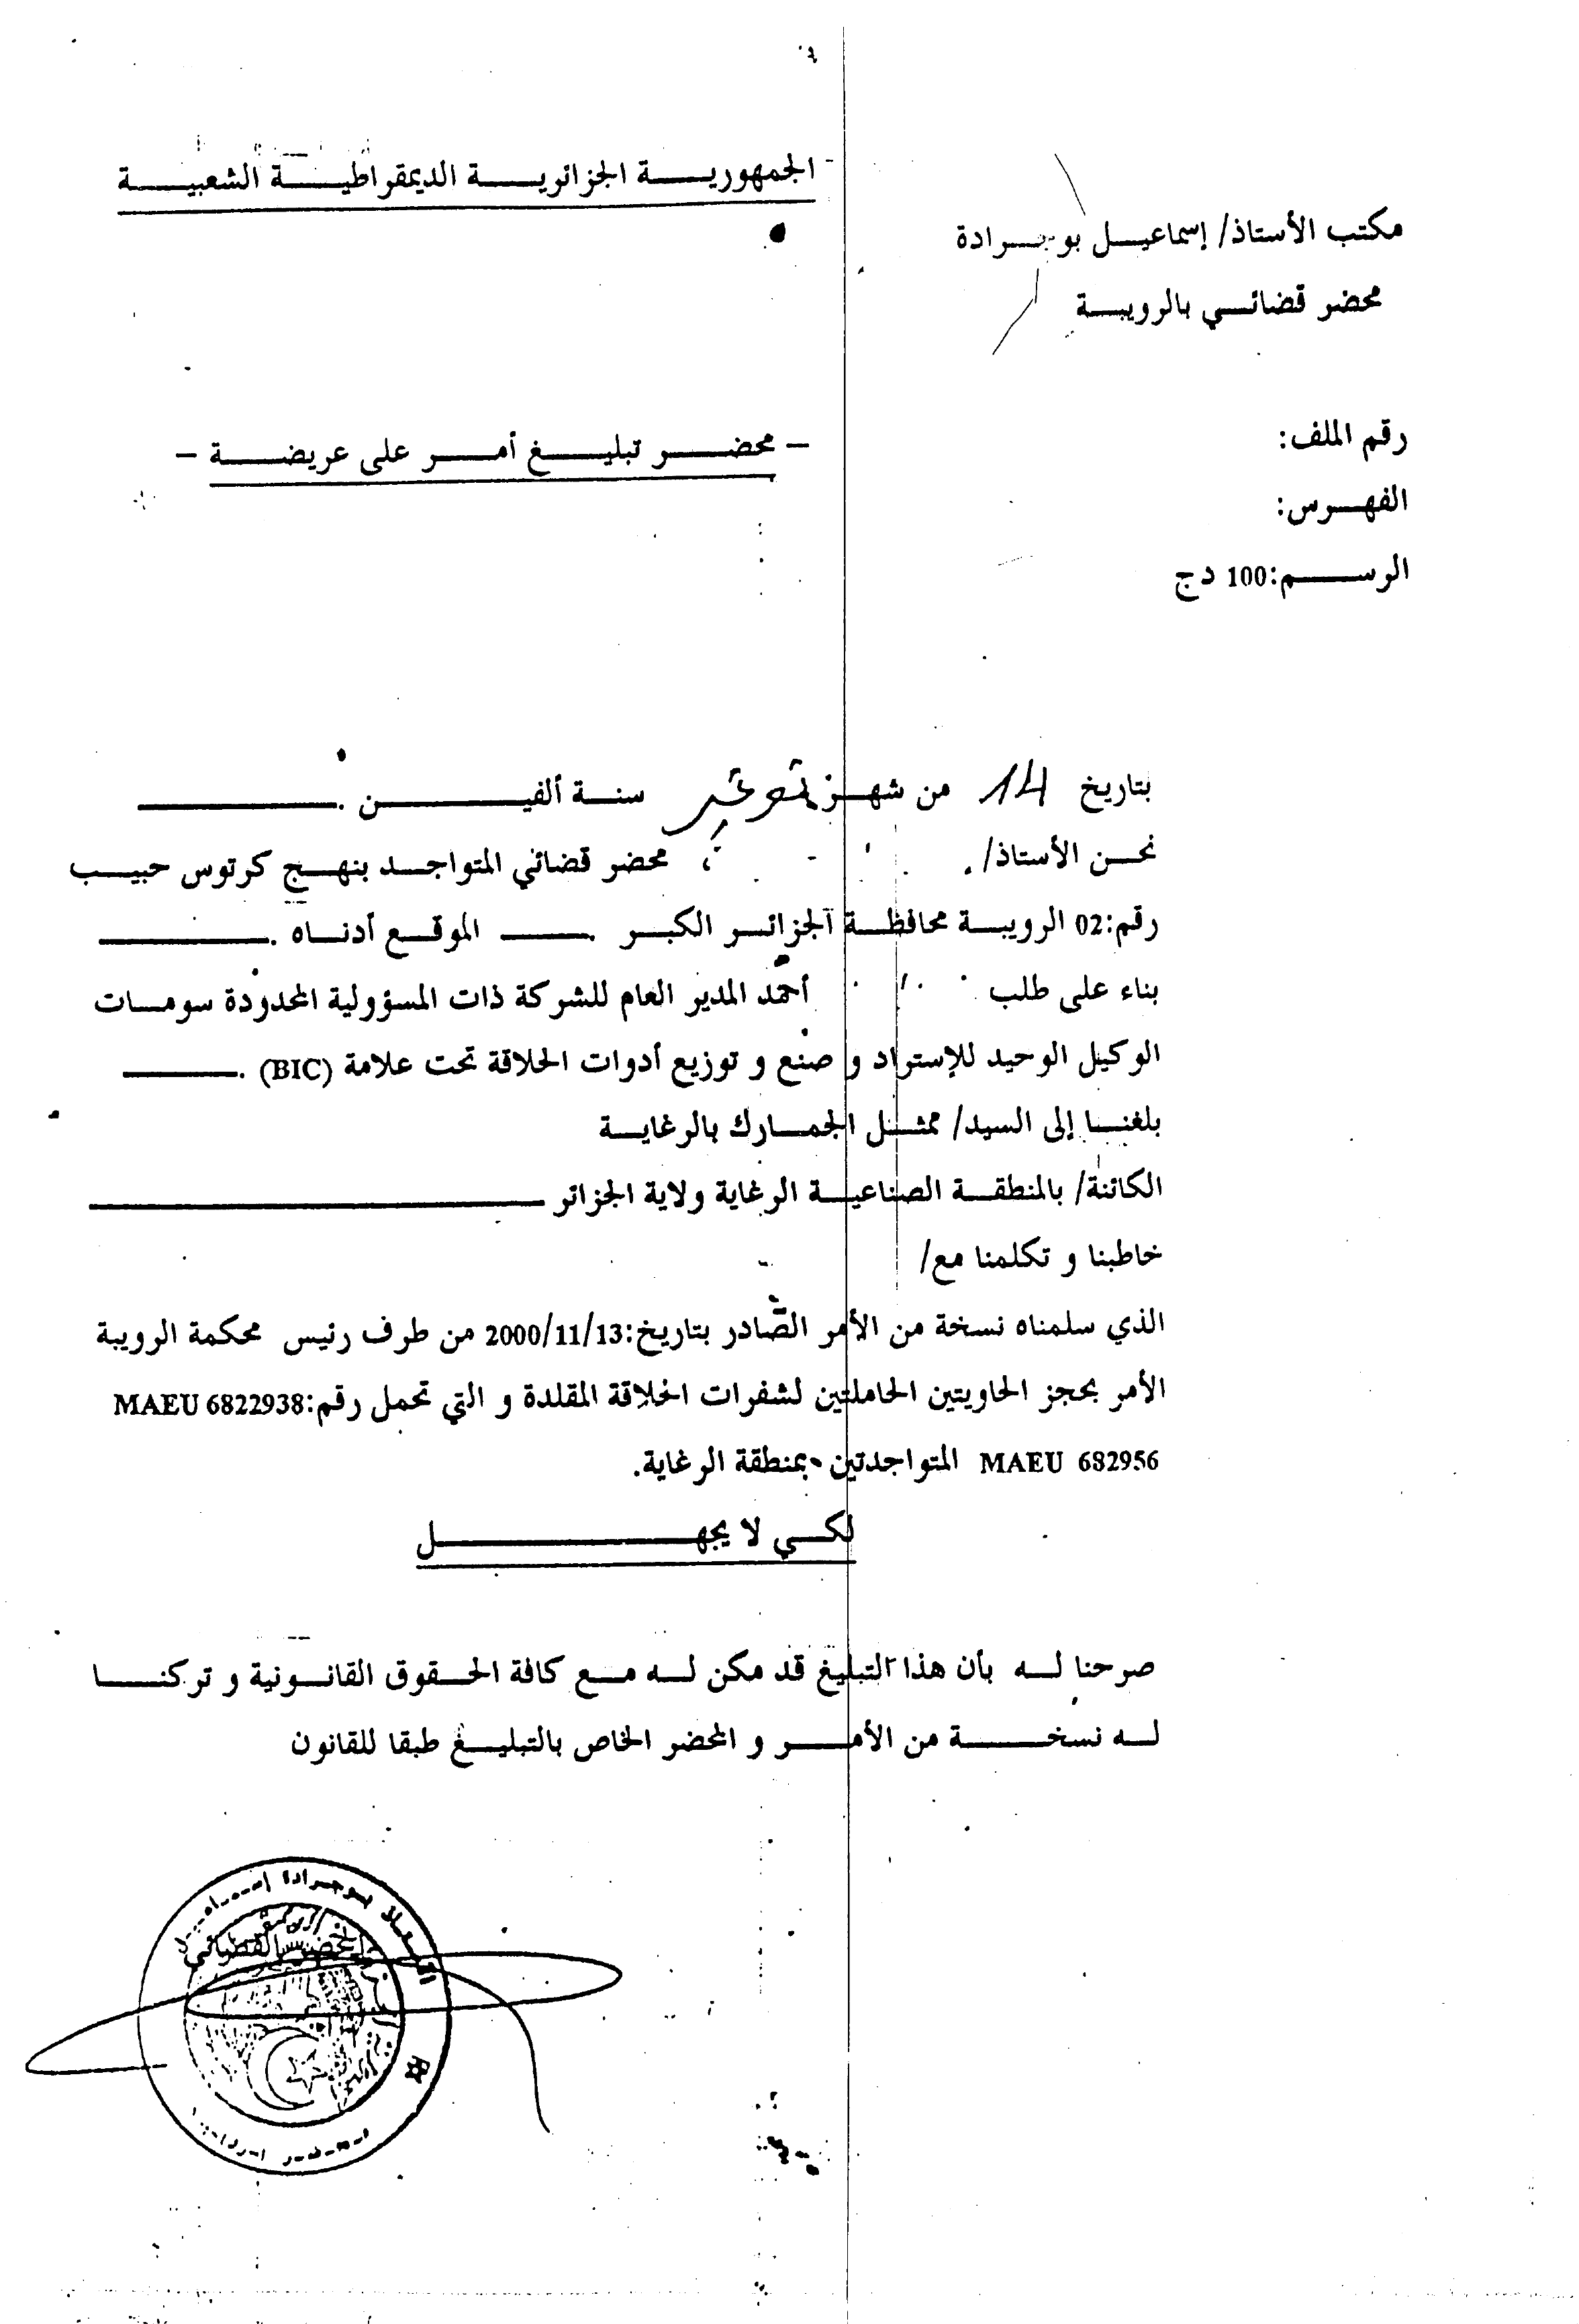 الجمهورية الجزائرية الديمقراطية الشعبية
مكتب الأستاذ/ إسماعيل بوجرادة
محضر قضائي بالرويبة
رقم الملف:
الفهرس:
الرسم:100 دج
– محضر تبليغ أمر على عريضة –
بتاريخ 14 من شهر نوفمبر سنة ألفين .
نحن الأستاذ/ . ، محضر قضائي المتواجد بنهج كرتوس حبيب
رقم:02 الرويبة محافظة الجزائر الكبر . الموقع أدناه .
بناء على طلب أحمد المدير العام للشركة ذات المسؤولية المحدودة سومات
الوكيل الوحيد للإستراد و صنع و توزيع أدوات الحلاقة تحت علامة (BIC) .
بلغنا إلى السيد/ ممثل الجمارك بالرغاية
الكائنة/ بالمنطقة الصناعية الرغاية ولاية الجزائر
خاطبنا و تكلمنا مع/
الذي سلمناه نسخة من الأمر الصّادر بتاريخ:2000/11/13 من طرف رئيس محكمة الرويبة
الأمر بحجز الحاويتين الحاملتين لشفرات الحلاقة المقلدة و التي تحمل رقم:MAEU 6822938
MAEU 682956 المتواجدتين بمنطقة الرغاية.
لكي لا يجهل
صرحنا له بأن هذا التبليغ قد مكن له مع كافة الحقوق القانونية و تركنا
له نسخة من الأمر و المحضر الخاص بالتبليغ طبقا للقانون
الأستاذ بوجرادة إسماعيل
المحضر القضائي